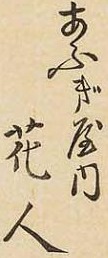 あふぎ屋内
花人